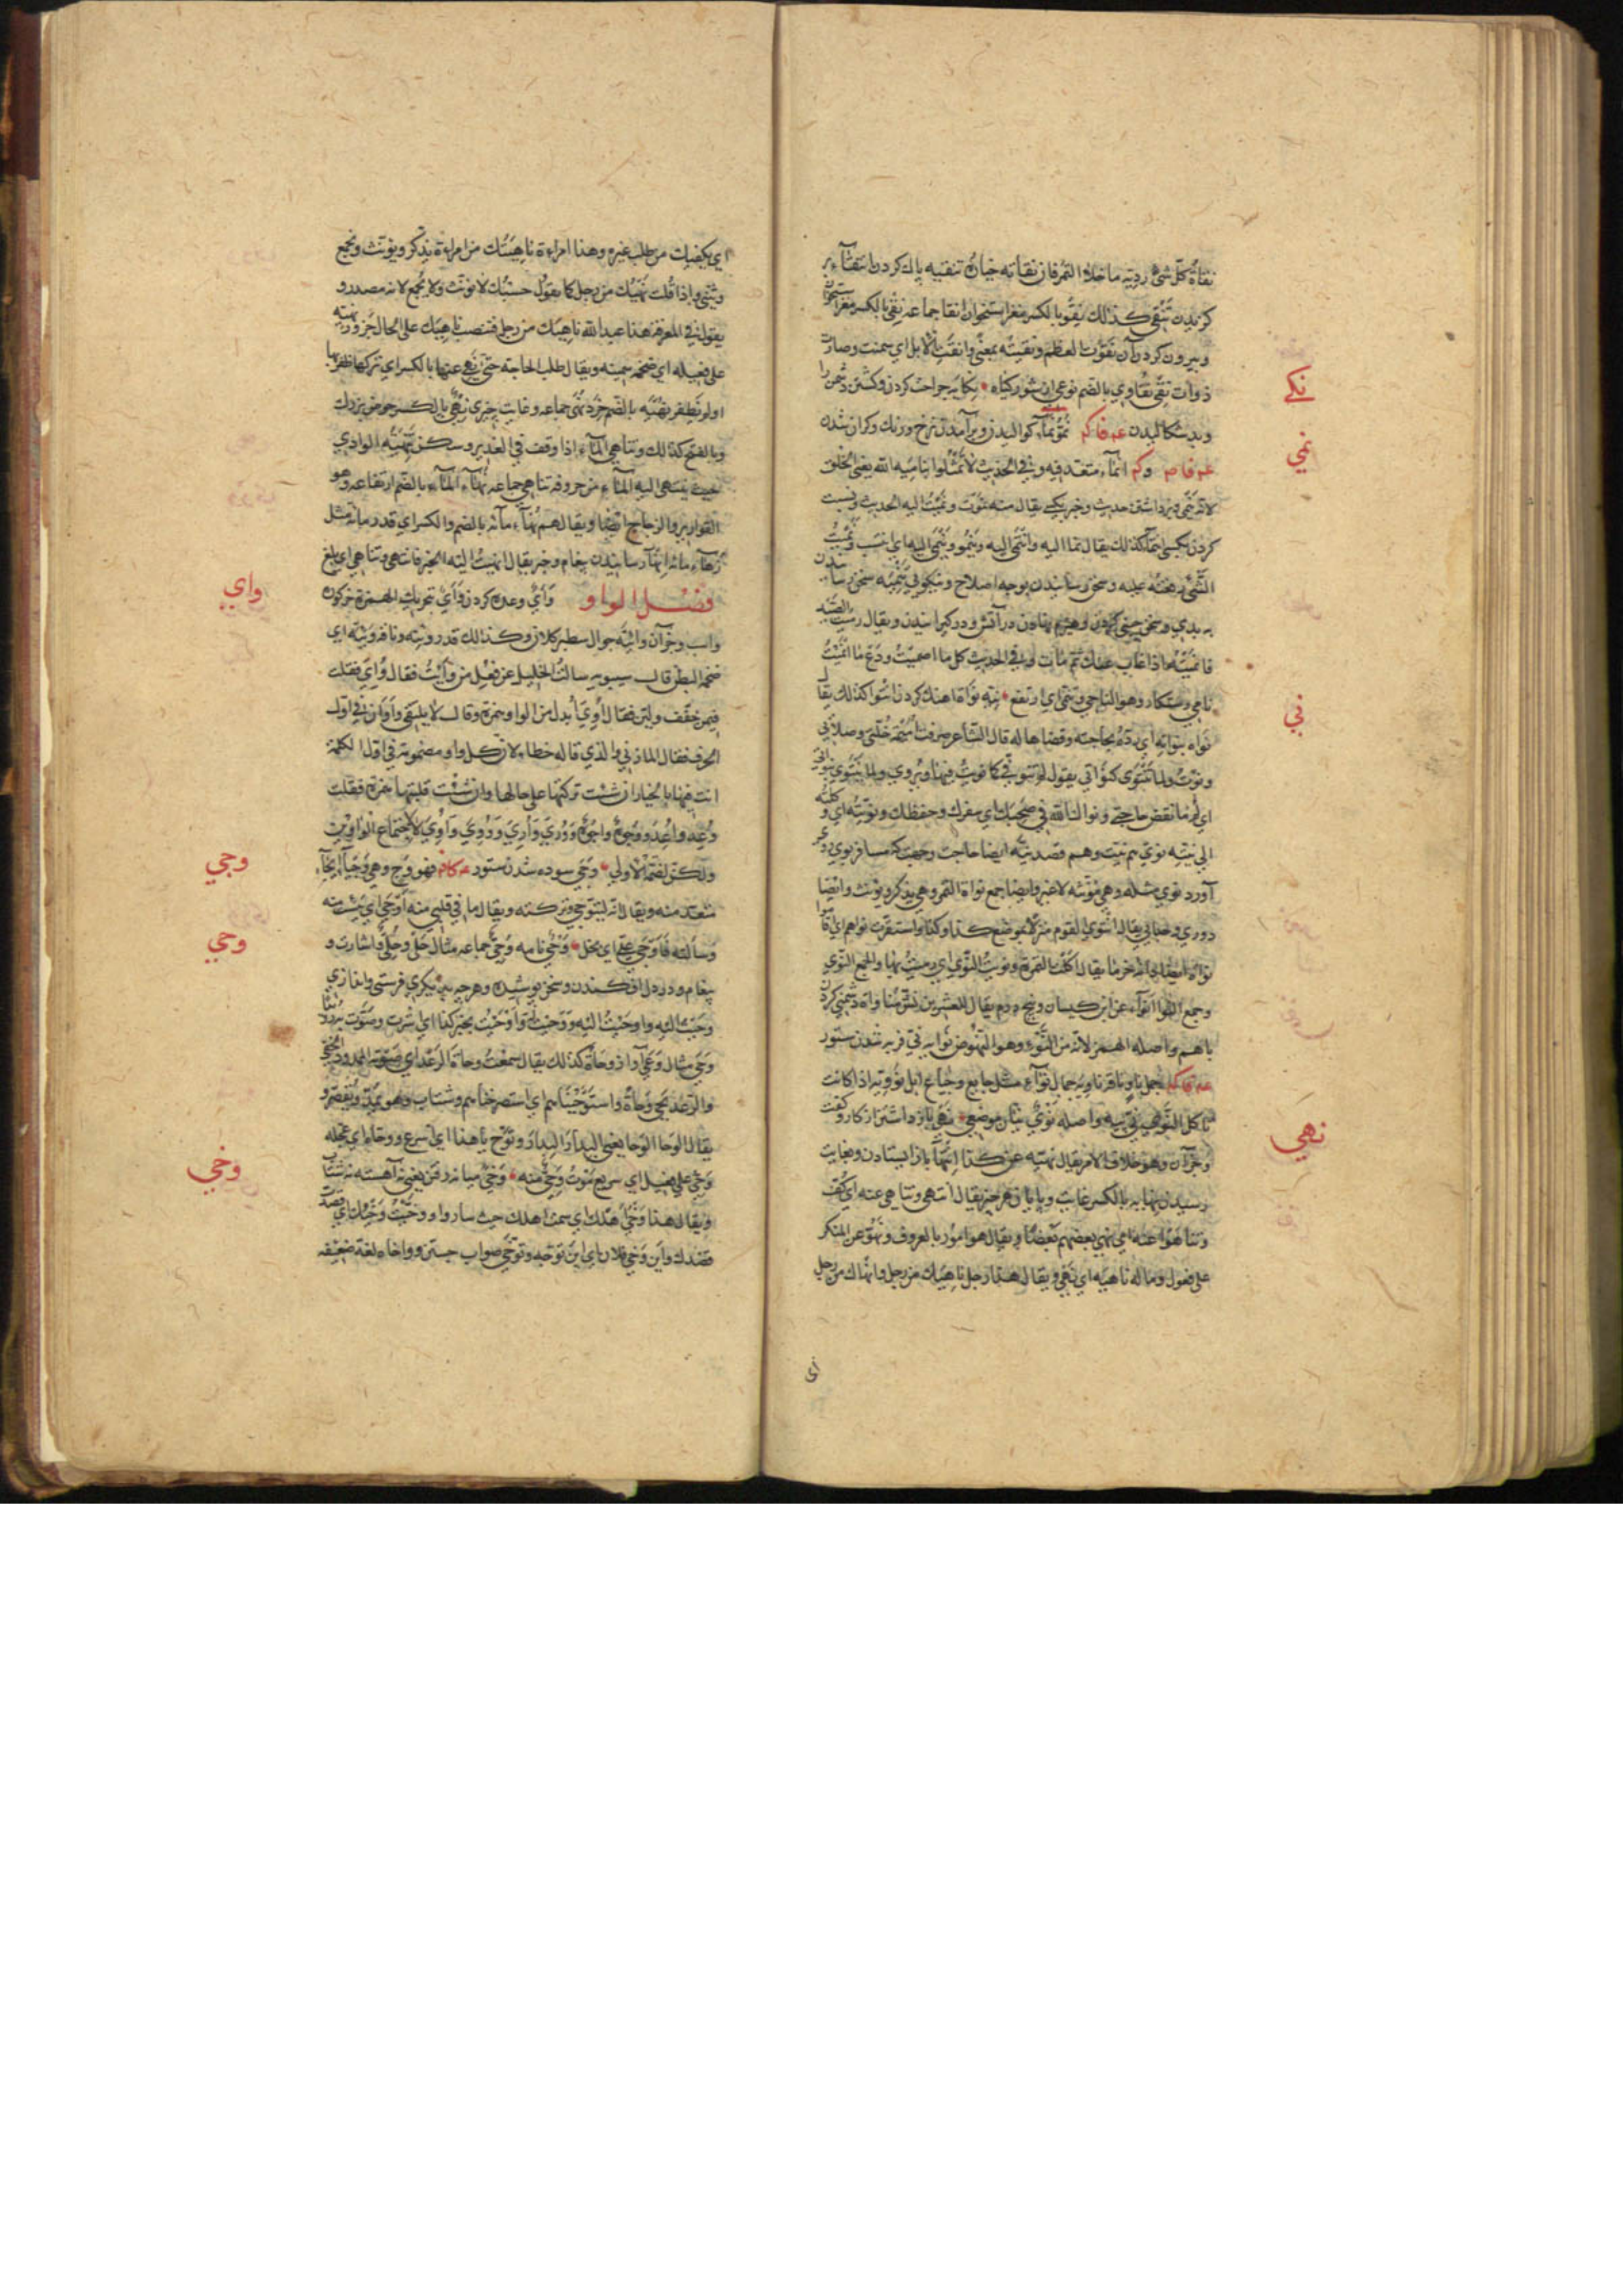 نقاة كل شئ رديه ما خلا التمر فان نقاته خياره تنقيه پاك كردن انتقاء بر
كزيدن تنقي كذلك نقو بالكسر مغز استخوان انقا جماعه نقي بالكسر مغز استخوان
وبيرون كردن آن نقوت العظم ونقيته بمعني وانقت الابل اي سمنت وصار
ذوات نقي نقاوي بالضم نوعي از شور كياه نكايه جراحت كردن وكشتن دشمن را
نكي
وبد سكاليدن نمو نماء كواليدن وبرآمدن نرخ ورنك وكران شدن
نمي
وكم انماء متعد فيه وفي الحديث لا تمثلوا بنامية الله يعني الخلق
لانه ينمي وبرداشتن حديث وخبر بكسي يقال منه نموت ونميت اليه الحديث ونسبت
كردن بكسي انتماء كذلك يقال نما اليه وانتمي اليه وينمو وينمي اليه اي انتسب ونميت
الشئ رفعته عليه وسخن رسانيدن بوجه اصلاح ونيكوئي تنميه سخن رسانيدن
به بدي وسخن چيني كردن وهيزم نهادن در آتش ودركيرانيدن ويقال رميت الصيد
فانميته اذا غاب عنك ثم مات وفي الحديث كل ما اصميت ودع ما انميت
نامي رستكار وهو الناجي وتنمي اي ارتفع نيه نواة اهنك كردن انتوا كذلك يقال
ني
نواه بنواته اي رده بحاجته وقضاها له قال الشاعر صرفت اميمة خلتي وصلاتي
ونوت ولما تنتوي كنواتي يقول لم تنو في كما نويت فيها ويروي ولما تنتوي بنواتي
اي لم تقض حاجتي ونواك الله في صحبك اي سفرك وحفظك ونويته اي وكلته
الي نيته نوي هم نيت وهم قصد نيه ايضا حاجت وجهت كه مسافر بوي روي
آورد نوي مثله وهي مؤنثه لا غير وايضا جمع نواة التمر وهي يذكر ويونث وايضا
دوري وجدائي يقال انتوي القوم منزلا بموضع كذا وكذا واستقرت نواهم اي اقاموا
نواة استه خرما يقال اكلت التمرة ونويت النوي اي رميت بها والجمع النوي
وجمع النوا انواء عن ابن كيسان وپنج درم يقال للعشرين نش مناواة دشمني كردن
باهم واصله الهمز لانه من النوء وهو النهوض نوايه ني فربه شدن ستور
جمل ناو وناقة ناويه جمال نواء مثل جايع وجياع ابل نوويه اذا كانت
تاكل النوي نيه واصله نوي نيان موضعي نهي بازداشتن از كار وكفت
نهي
وجز آن وهو خلاف الامر يقال نهيته عن كذا انتهاء باز ايستادن وبغايت
رسيدن نهايه بالكسر غايت وپايان هر چيز يقال انتهي وتناهي عنه اي كف
وتناهوا عنه اي نهي بعضهم بعضا ويقال هو امور بالمعروف ونهو عن المنكر
علي فعول وماله ناهيه اي نهي ويقال هذا رجل ناهيك من رجل وانهاك من رجل
اي
اي يكفيك من طلب غيره وهذا امراءة ناهيتك من امراءة يذكر ويونث ويجمع
ويثني واذا قلت نهيك من رجل كما يقول حسبك لا يونث ولا يجمع لانه مصدر و
يقول في المعرفة هذا عبد الله ناهيك من رجل فتنصب ناهيك علي الحال جزور نهية
علي فعيله اي ضخمه سمينه ويقال طلب الحاجة حتي نهي عنها بالكسر اي تركها ظفر بها
او لم يظفر نهيه بالضم خرد نهي جماعه وغايت چيزي نهي بالكسر حوض بزرك
وبالفتح كذلك وتناهي الماء اذا وقف في الغدير وسكن تنهية الوادي
حيث ينتهي اليه الماء من حروفه تناهي جماعه نهاء الماء بالضم ارتفاعه وهو
القوارير والزجاج ايضا ويقال هم نهاء مائة بالضم والكسر اي قدر مائة مثل
زهاء مائة انهاء رسانيدن پيغام وخبر يقال انهيت اليه الخبر فانتهي وتناهي اي بلغ
فصل الواو وأي وعده كردن وأي بتحريك الهمزة خركور
واي
واسب وجز آن وائيه جوال سطبر كلان وكذلك قدر وئية وناقة وئيه اي
ضخمة البطن قال سيبويه سالت الخليل عن فعل من وأيت فقال وؤي فقلت
فمن خفف ولين فقال اوي بدل من الواو همزة وقال لا يلتقي واوان في اول
الحرف فقال المازني والذي قاله خطاء لان كل واو مضمومة في اول الكلمة
انت فيها بالخيار ان شئت تركتها علي حالها وان شئت قلبتها همزة فقلت
وعد واعد ووجوه واجوه وووري واوري ووؤي واوي لا لاجتماع الواوين
ولكن لضمة الاولي وجي سوده شدن ستور فهو وج وهي وجياء ايجاء
وجي
متعد منه ويقال انه ليتوجي وتركته ويقال ما في قلبي منه اوجي اي يئست منه
وسألته فاوجي علي اي بخل وحي نامه وحي جماعه مثال حلي وحلي واشارت و
وحي
پيغام ودر دل افكندن وسخن پوشيده وهر چه بديكري فرستي واندازي
وحيت اليه واوحيت اليه ووحيت له واوحيت بخير كذا اي اشرت وصوت به
وحي مثال وعي آواز وحاة كذلك يقال سمعت وحاة الرعد اي صوته الممدود الخفي
والرعد يحي وحاة واستوحيناهم اي استصرخناهم وشتاب وهو يمد ويقصر و
يقال الوحا الوحا يعني البدار البدار وتوح يا هذا اي اسرع ووحاه اي عجله
وحي علي فعيل اي سريع موت وحي منه وخي ميانه رفتن يعني نه آهسته نه شتاب
وخي
ويقال هذا وخي اهلك اي سمت اهلك حيث ساروا ووخيت وخيك اي قصدت
قصدك واين وخي فلان اي اين توجه وتوخي صواب جستن وواخاه لغة ضعيفه